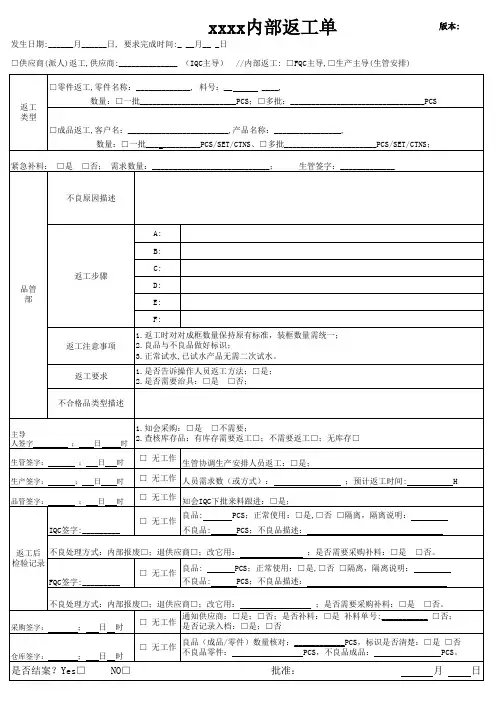 xxxx内部返工单 版本:
发生日期:______月______日, 要求完成时间:_ __月__ _日
□供应商(派人)返工,供应商:______________ (IQC主导) //内部返工: □FQC主导,□生产主导(生管安排)
返工
类型
□零件返工,零件名称: _____________, 料号: __ ______ ____,
数量: □一批_______________________PCS; □多批: ________________________________PCS
□成品返工,客户名: ________________________,产品名称: ________________,
数量: □一批_____________PCS/SET/CTNS、□多批______________________PCS/SET/CTNS;
紧急补料: □是 □否; 需求数量: ____________________________; 生管签字: _____________
品管
部
不良原因描述
返工步骤
A:
B:
C:
D:
E:
F:
返工注意事项
1.返工时对对成框数量保持原有标准，装框数量需统一;
2.良品与不良品做好标识;
3.正常试水,已试水产品无需二次试水。
返工要求
1.是否告诉操作人员返工方法: □是;
2.是否需要治具: □是 □否;
不合格品类型描述
主导
人签字________ : __日 __时
1.知会采购: □是 □不需要;
2.查核库存品: 有库存需要返工□; 不需要返工□; 无库存□
生管签字: ______ : __日 __时 □ 无工作 生管协调生产安排人员返工: □是;
生产签字: ______: __日 __时 □ 无工作 人员需求数(或方式): ________________ ;预计返工时间: __________H
品管签字: ______ : __日 __时 □ 无工作 知会IQC下批来料跟进: □是;
返工后
检验记录
IQC签字:_________
□ 无工作
良品: ______ PCS; 正常使用: □是,□否 □隔离, 隔离说明: ________
不良品: _____ PCS; 不良品描述: ________________
不良处理方式: 内部报废□; 退供应商□; 改它用: ______________ ;是否需要采购补料: □是 □否。
FQC签字:_________
□ 无工作
良品: ______ PCS; 正常使用: □是,□否 □隔离, 隔离说明: ________
不良品: _____ PCS; 不良品描述: ________________
不良处理方式: 内部报废□; 退供应商□; 改它用: ________________ ;是否需要采购补料: □是 □否。
采购签字: ______ : __ 日 __ 时
□ 无工作
通知供应商: □是; □否; 是否补料: □是 补料单号:___________ □否;
是否记录入档: □是; □否
仓库签字: ______ : __ 日 __ 时
□ 无工作
良品(成品/零件)数量核对: ____________PCS, 标识是否清楚: □是 □否
不良品零件: ________________ PCS, 不良品成品: ________________ PCS。
是否结案? Yes□ NO□ 批准: ______月 ______日